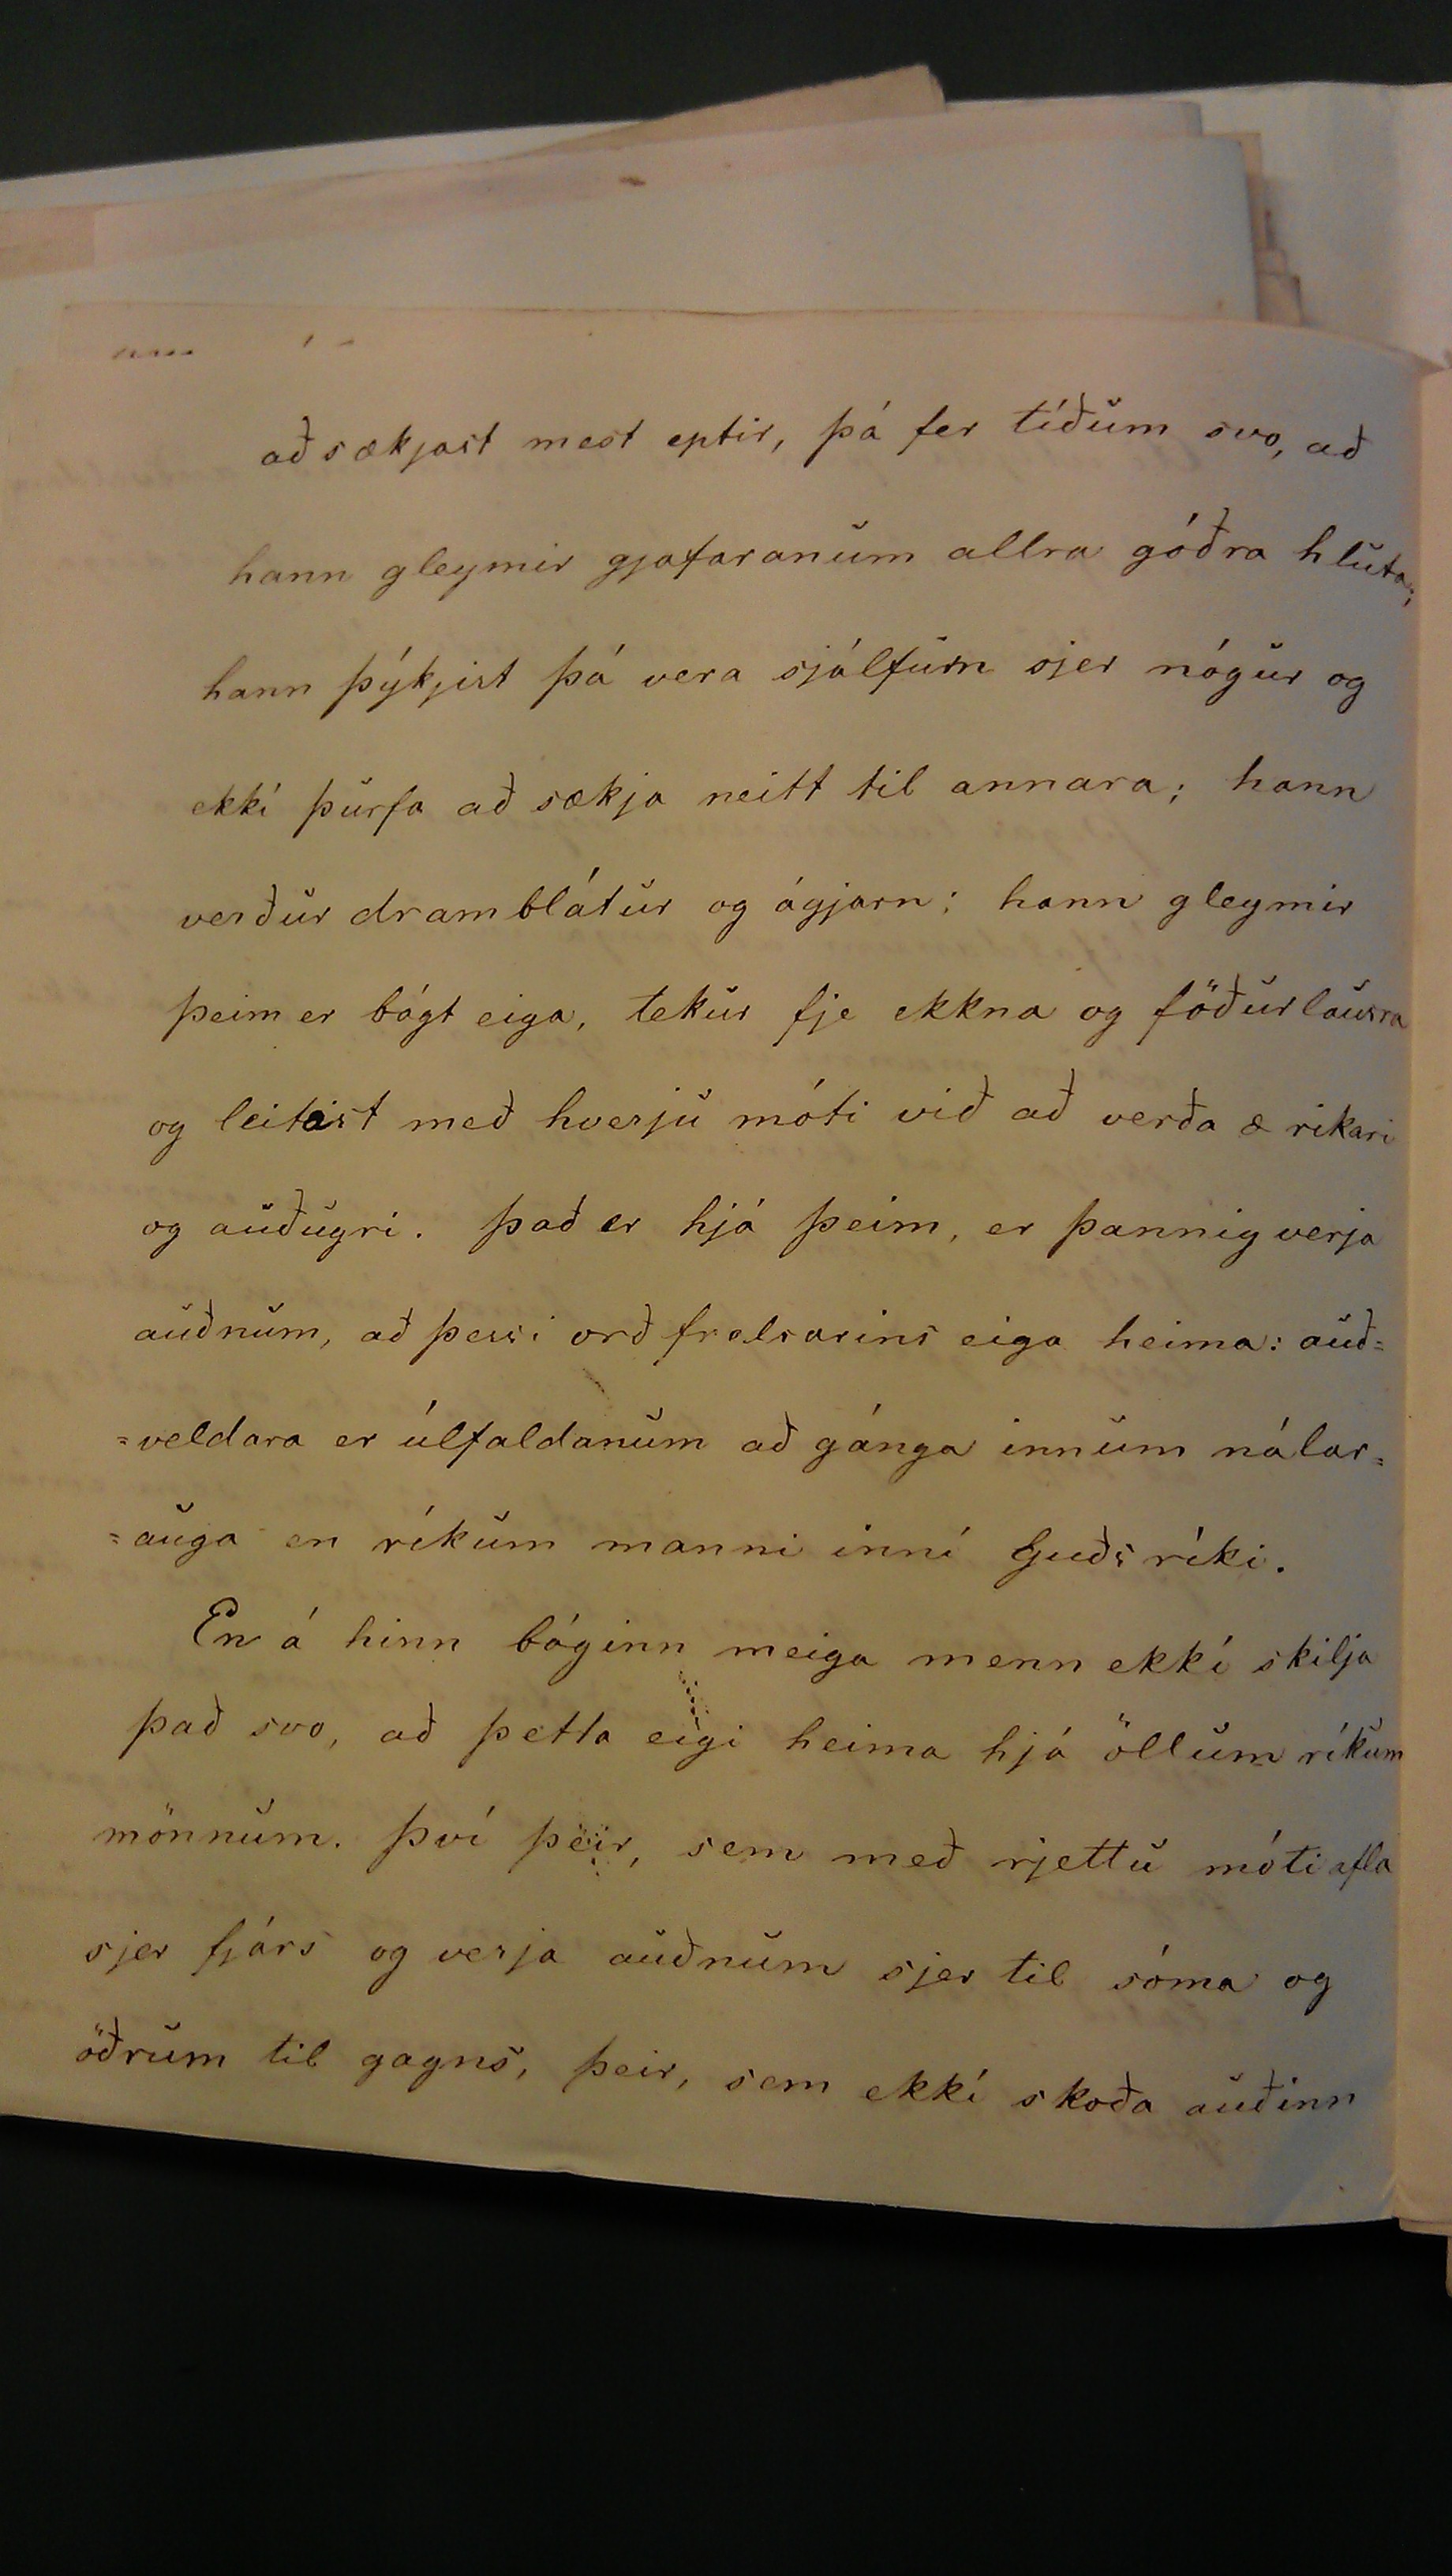 að sækjast mest eptir, þá fer tíðum svo, að
hann gleymir gjafaranum allra góðra hluta;
hann þýkjist þá vera sjálfum sjer nógur og
ekki þurfa að sækja neitt til annara; hann
verður dramblátur og ágjarn; hann gleymir
þeim er bágt eiga, tekur fje ekkna og föðurlausra
og leitast með hverju móti við að verða æ rikari
og auðugri. Það er hjá þeim, er þannig verja
auðnum, að þessi orð frelsarins eiga heima: auð=
=veldara er úlfaldanum að gánga innum nálar=
=auga en ríkum manni inní Guðs ríki.
En á hinn bóginn meiga menn ekki skilja
það svo, að þetta eigi heima hjá öllum ríkum
mönnum. Því þeir, sem með rjettu móti afla
sjer fjárs og verja auðnum sjer til sóma og
öðrum til gagns, þeir, sem ekki skoða auðinn